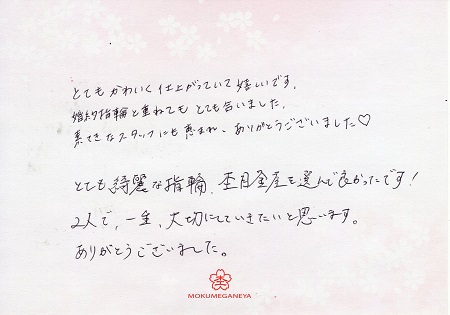 とてもかわいく仕上がっていて嬉しいです。
婚約指輪と重ねてもとても合いました。
素てきなスタッフにも恵まれ、ありがとうございました♡
とても綺麗な指輪、杢目金屋を選んで良かったです！
2人で、一生、大切にしていきたいと思います。
ありがとうございました。
MOKUMEGANEYA